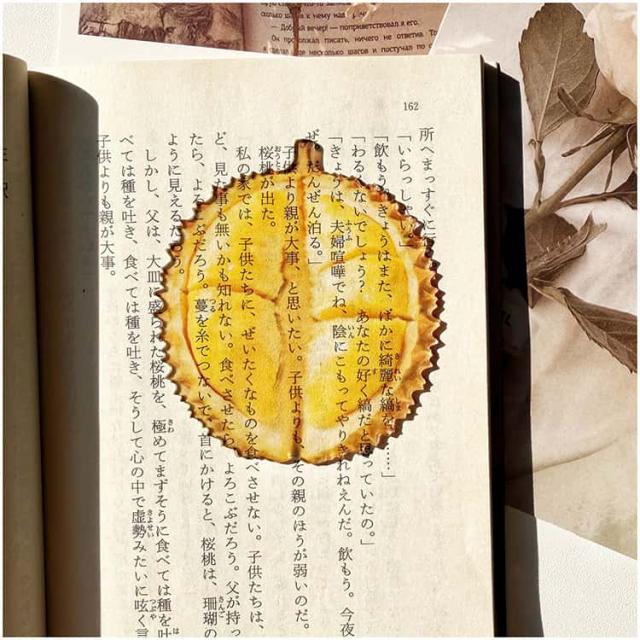 сколько шагов к нему
— Добрый вечер! — поприветствовал я его.
Он продолжал писать, ничего не ответив.
еще несколько шагов и постучал по
162
所へまっすぐに
「いらっしゃい。」
「飲もう。きょうはまた、ばかに綺麗な縞を、……」
「わるくないでしょう? あなたの好く縞だと思っていたの。」
「きょうは、夫婦喧嘩でね、陰にこもってやりきれねえんだ。飲もう。今夜
ぜ。だんぜん泊る。」
子供より親が大事、と思いたい。子供よりも、その親のほうが弱いのだ。
桜桃が出た。
私の家では、子供たちに、ぜいたくなものを食べさせない。子供たちは、
ど、見た事も無いかも知れない。食べさせたら、よろこぶだろう。父が持っ
たら、よろこぶだろう。蔓を糸でつないで、首にかけると、桜桃は、珊瑚の
ように見えるだろう。
しかし、父は、大皿に盛られた桜桃を、極めてまずそうに食べては種を吐
べては種を吐き、食べては種を吐き、そうして心の中で虚勢みたいに呟く言
子供よりも親が大事。